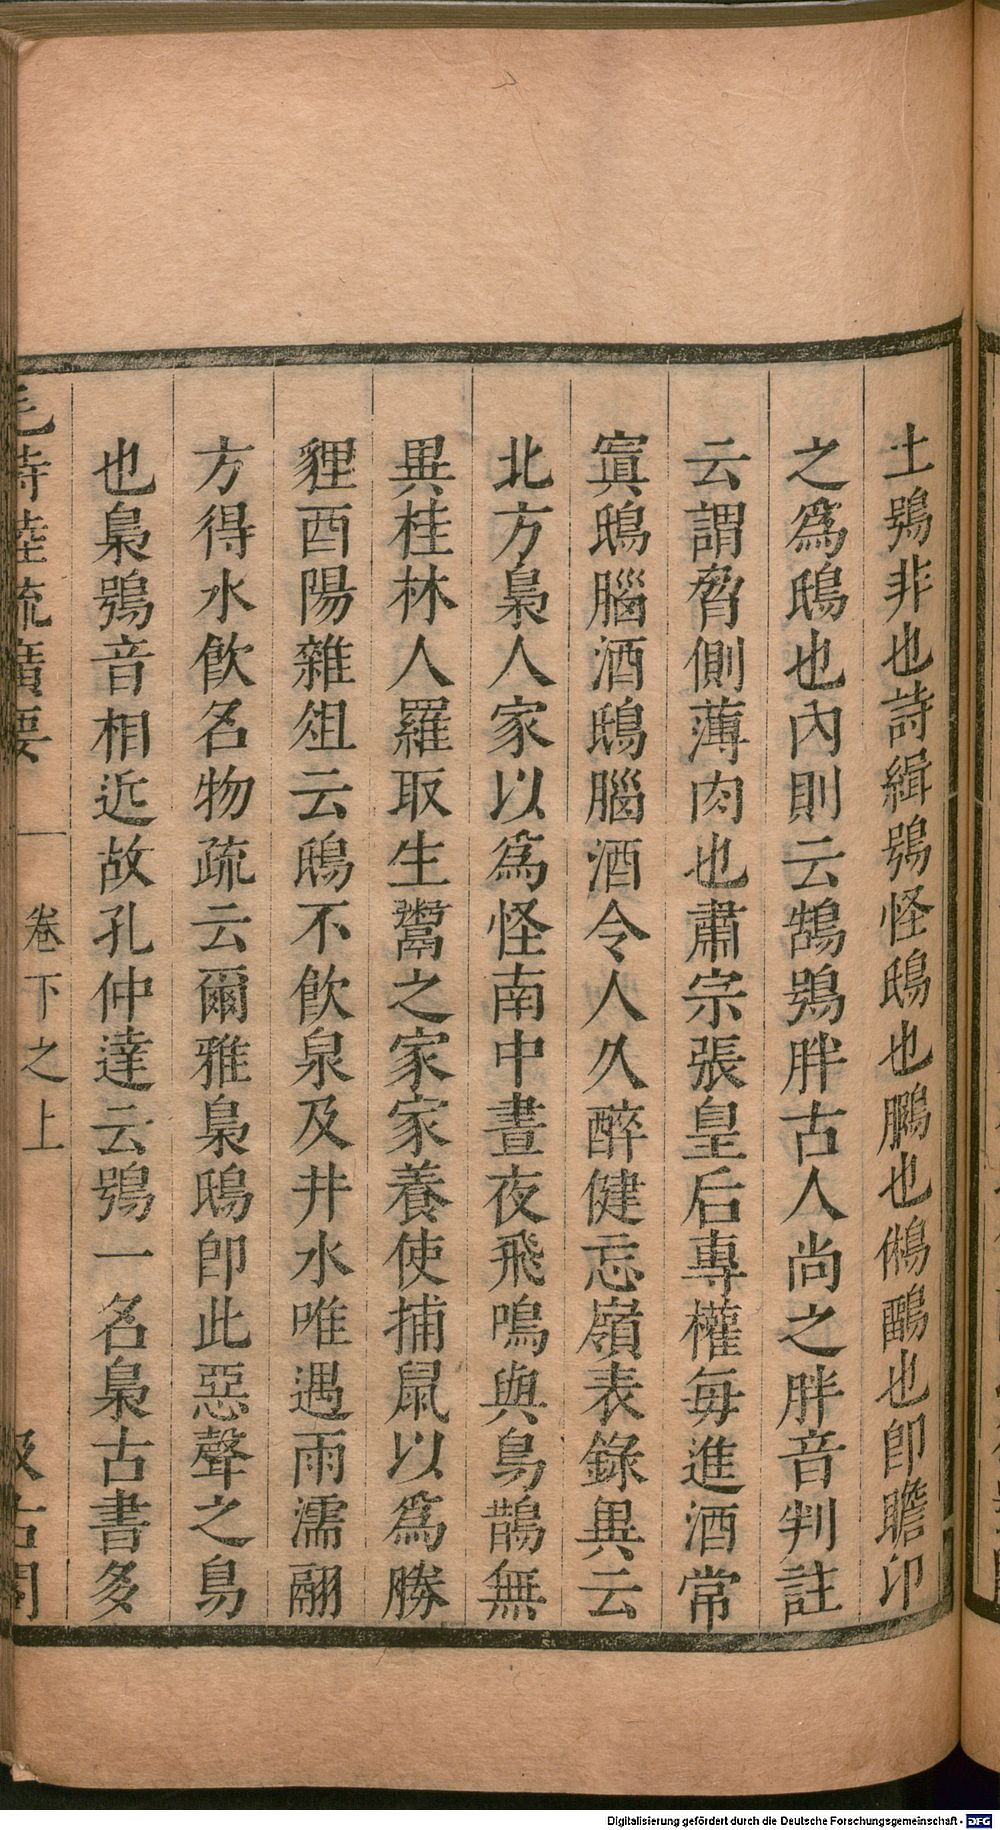 土鴞非也詩緝鴞怪鴟也鵩也鵂鶹也卽瞻卬
之爲鴟也內則云鵠鴞胖古人尚之胖音判註
云謂脅側薄肉也肅宗張皇后專權每進酒常
寘鴟腦酒鴟腦酒令人久醉健忘嶺表錄異云
北方梟人家以爲怪南中晝夜飛鳴與烏鵲無
異桂林人羅取生鬻之家家養使捕鼠以爲勝
貍酉陽雜俎云鴟不飮泉及井水唯遇雨濡翮
方得水飮名物疏云爾雅梟鴟卽此惡聲之鳥
也梟鴞音相近故孔仲達云鴞一名梟古書多
毛詩陸疏廣要 卷下之上 汲古閣
Digitalisierung gefördert durch die Deutsche Forschungsgemeinschaft - DFG